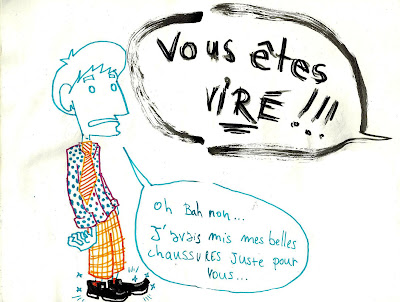 Vous êtes
VIRÉ !!!
Oh Bah non...
J'avais mis mes belles
chaussures juste pour
vous...